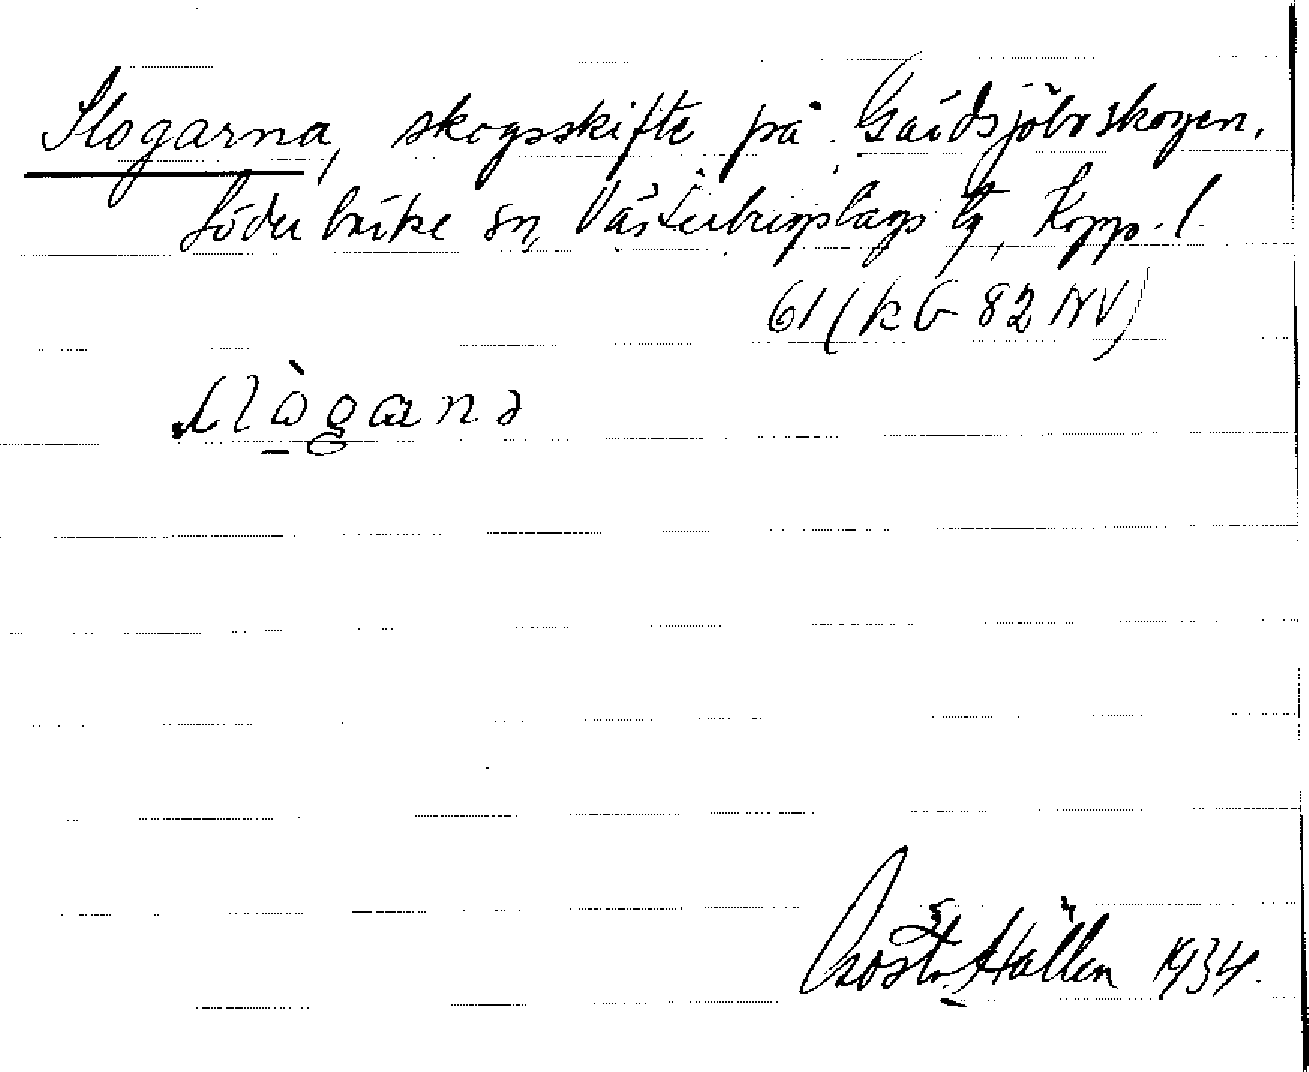 Slogarna, skogsskifte på Gårdsjöboskogen.
Söderbärke sn, Västerbergslags tg, Kopp. l.
61 (kG 82 NV)
slògana
Gösta Hallén 1934.